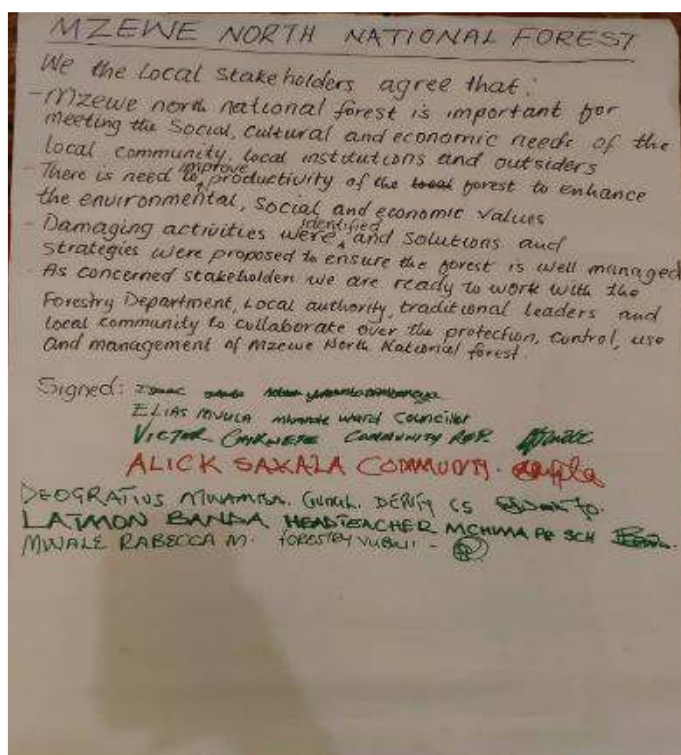 MZEWE NORTH NATIONAL FOREST
We the Local Stakeholders agree that:
- Mzewe north national forest is important for
meeting the Social, cultural and economic needs of the
local community, local institutions and outsiders
- There is need to improve productivity of the local forest to enhance
the environmental, Social and economic values
- Damaging activities were identified and Solutions and
strategies were proposed to ensure the forest is well managed
- As concerned stakeholders we are ready to work with the
Forestry Department, Local authority, traditional leaders and
local community to collaborate over the protection, control, use
and management of Mzewe North National forest.
Signed:
ELIAS MVULA Ward Councillor
VICTOR COMMUNITY REP.
ALICK SAKALA COMMUNITY.
DEOGRATIUS MWAMBA.
LAIMON BANDA HEADTEACHER MCHIMA PR SCH
MWALE RABECCA M. FORESTRY